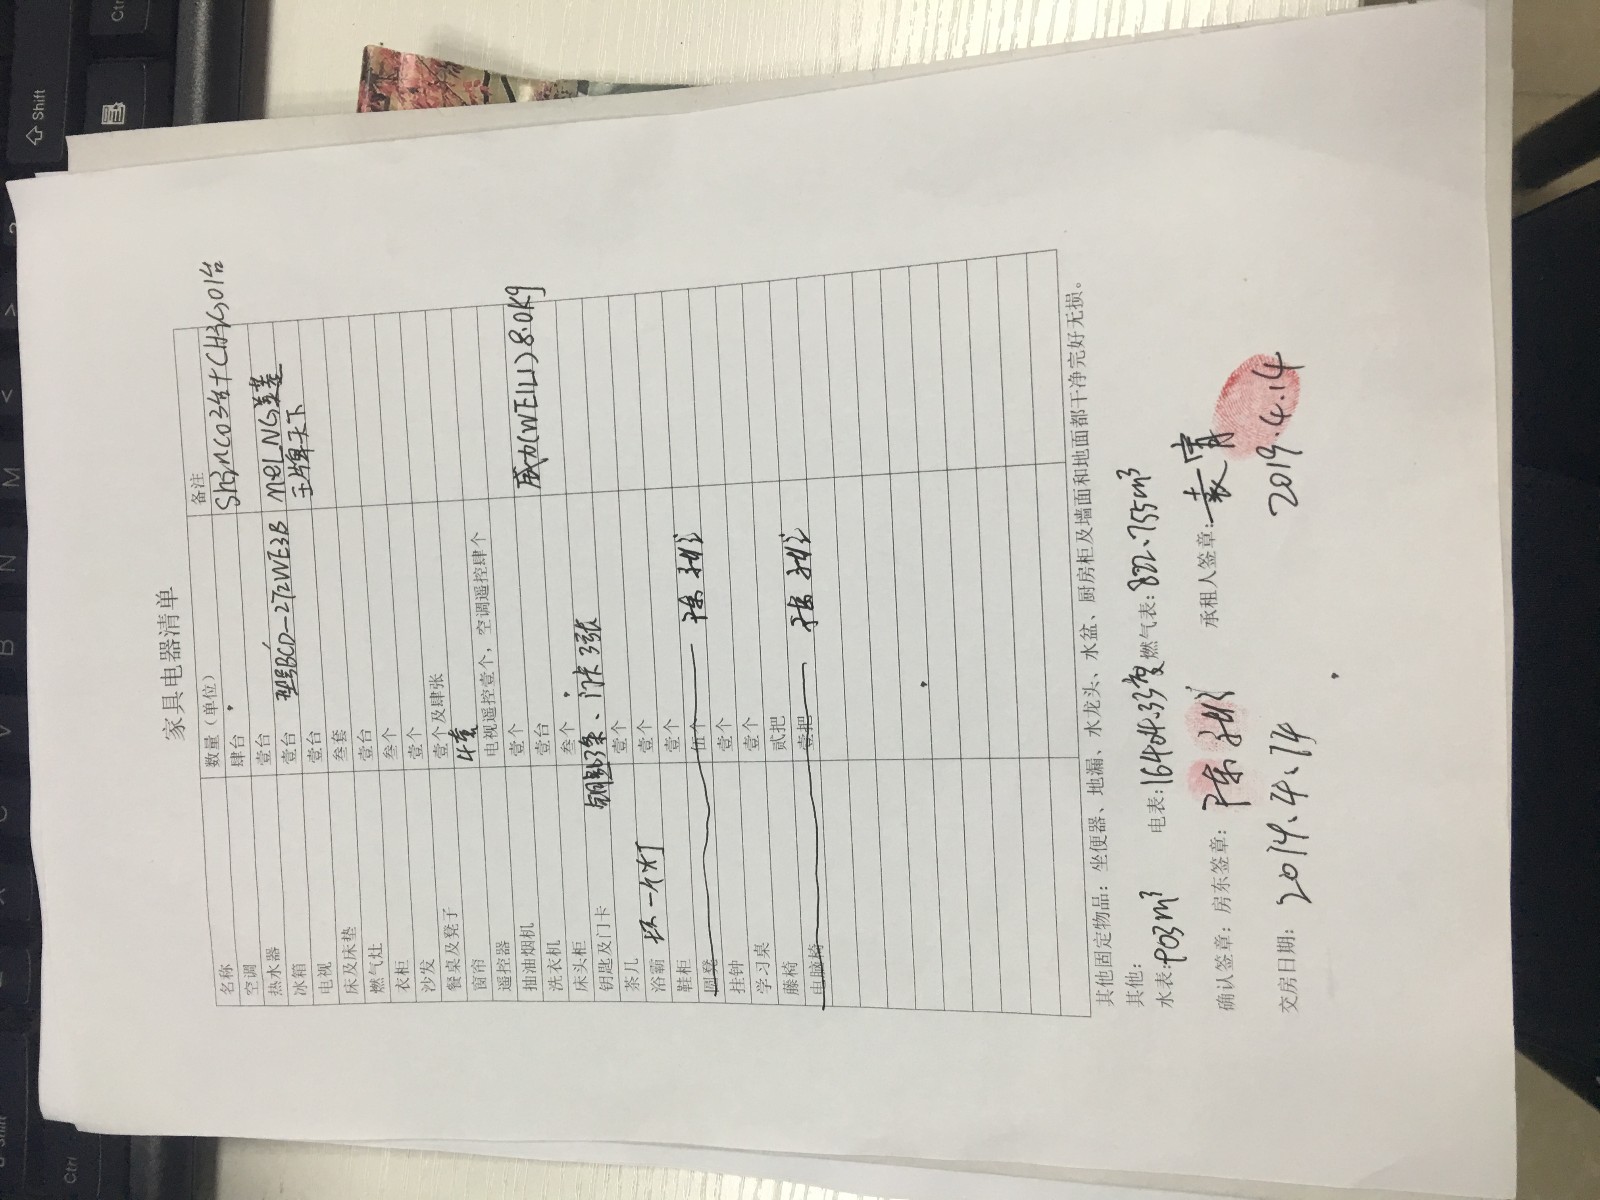 家具电器清单
名称 数量（单位） 备注
空调 肆台
热水器 壹台
冰箱 壹台 型号BCD-272WE3B
电视 壹台 王牌天下
床及床垫 叁套
燃气灶 壹台
衣柜 叁个
沙发 壹个
餐桌及凳子 壹个及肆张
窗帘 4套
遥控器 电视遥控壹个，空调遥控肆个
抽油烟机 壹个
洗衣机 壹台 威力(WEILI)8.0Kg
床头柜 叁个
钥匙及门卡 钥匙3条、门卡3张
茶几 壹个
浴霸 坏一个灯 壹个
鞋柜 壹个
圆凳 伍个
挂钟 壹个
学习桌 壹个
藤椅 贰把
电脑椅 壹把
其他固定物品：坐便器、地漏、水龙头、水盆、厨房柜及墙面和地面都干净完好无损。
其他：
水表：903m³ 电表：16404.33度 燃气表：822.755m³
确认签章：房东签章： 承租人签章：
交房日期： 2019.4.14 2019.4.14
Shift
Ctrl
Ctrl
B
N
M